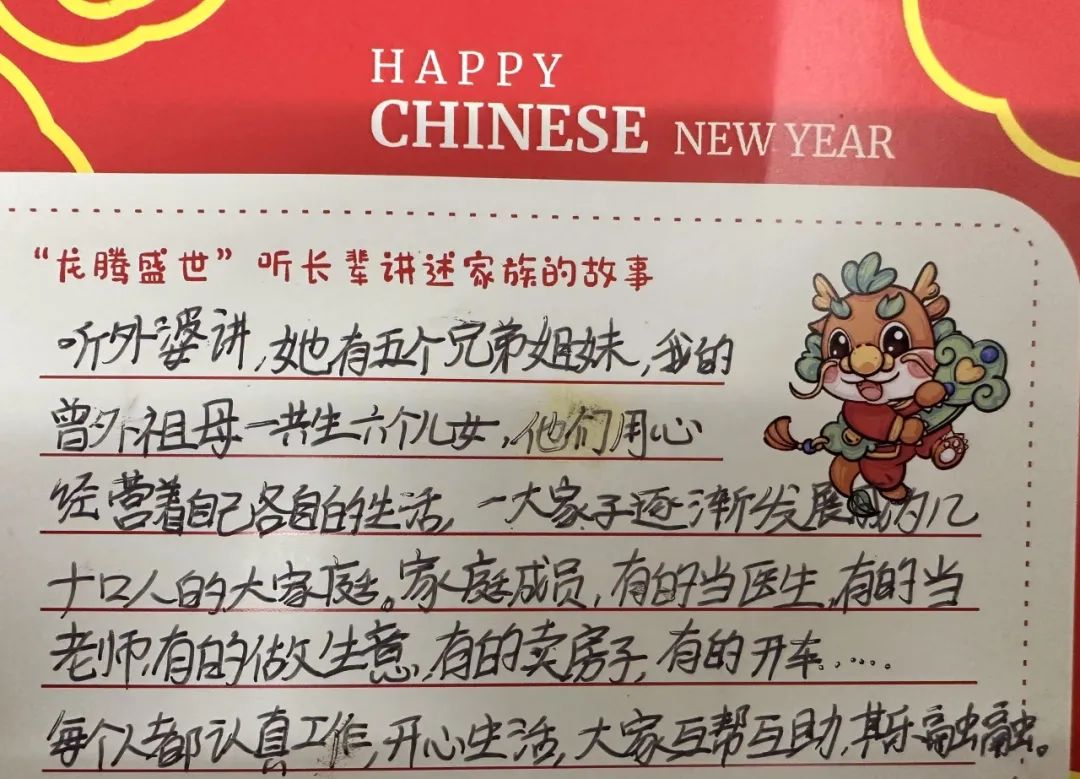 HAPPY
CHINESE NEW YEAR
“龙腾盛世”听长辈讲述家族的故事
听外婆讲,她有五个兄弟姐妹,我的
曾外祖母一共生六个儿女,他们用心
经营着自己各自的生活,一大家子逐渐发展成为几
十口人的大家庭。家庭成员,有的当医生,有的当
老师,有的做生意,有的卖房子,有的开车……
每个人都认真工作,开心生活,大家互帮互助,其乐融融。